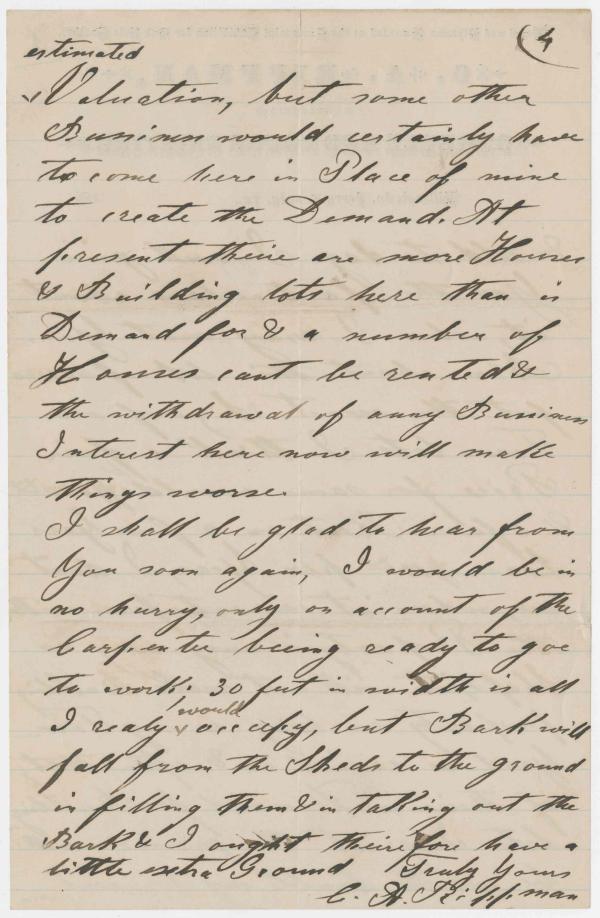 (4
estimated
Valuation, but some other
Bussiness would certainly have
to come here in Place of mine
to create the Demand. At
present theire are more Houses
& Building lots here than is
Demand for & a number of
Houses cant be rented &
the withdrawal of anny Bussiness
Interest here now will make
things worse.
I shall be glad to hear from
You soon again, I would be in
no hurry, only on account of the
Carpenter being ready to goe
to work; 30 feet in width is all
would
I realy occupy, but Bark will
fall from the Sheds to the ground
in filling them & in taking out the
Bark & I ought theirefore have a
little extra Ground Truly Yours
C. A. Rippman